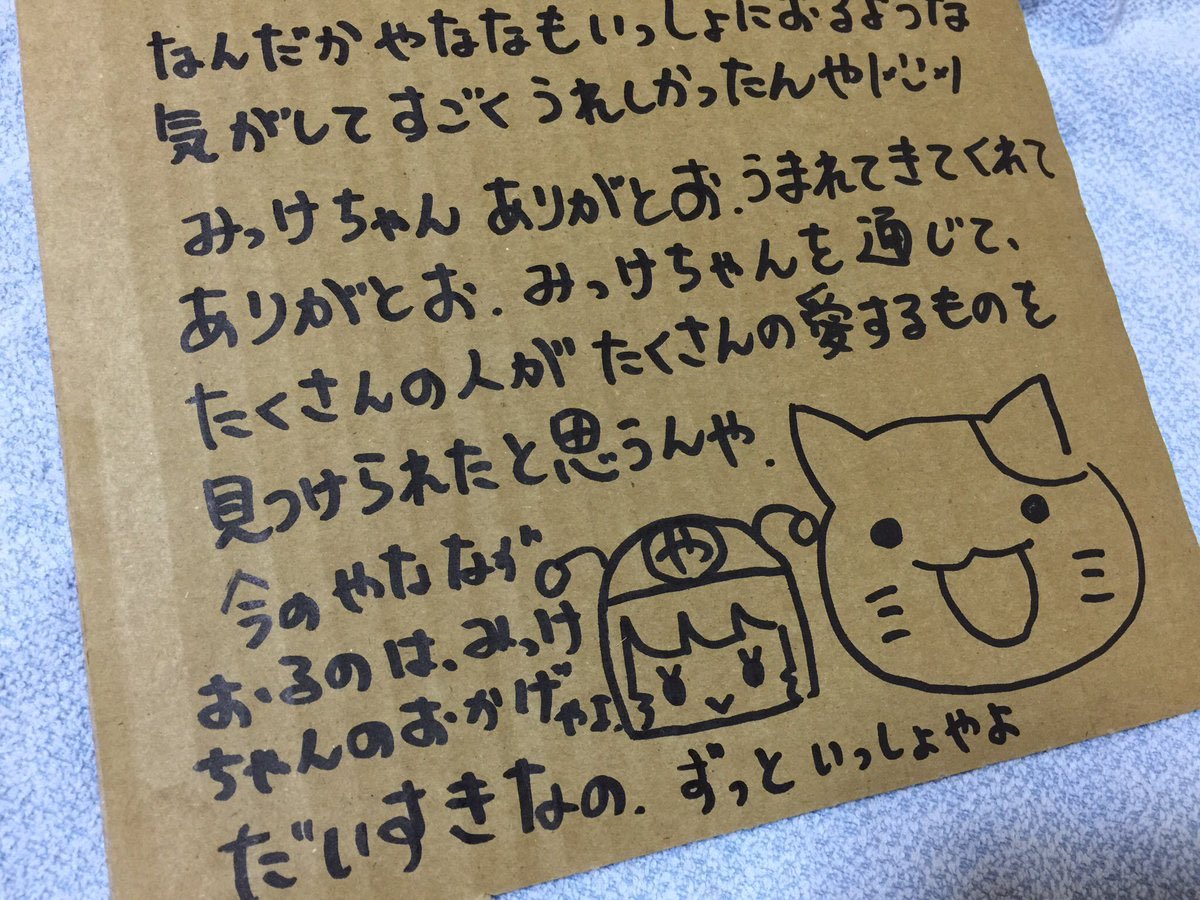 なんだか やななもいっしょにおるような
気がして すごく うれしかったんや|•ˇ◡ˇ•|
みっけちゃん ありがとお.うまれてきてくれて
ありがとお. みっけちゃんを通じて、
たくさんの人が たくさんの愛するものを
見つけられたと思うんや.
今のやななが
おるのは、みっけ
ちゃんのおかげやよ.
だいすきなの. ずっといっしょやよ
や